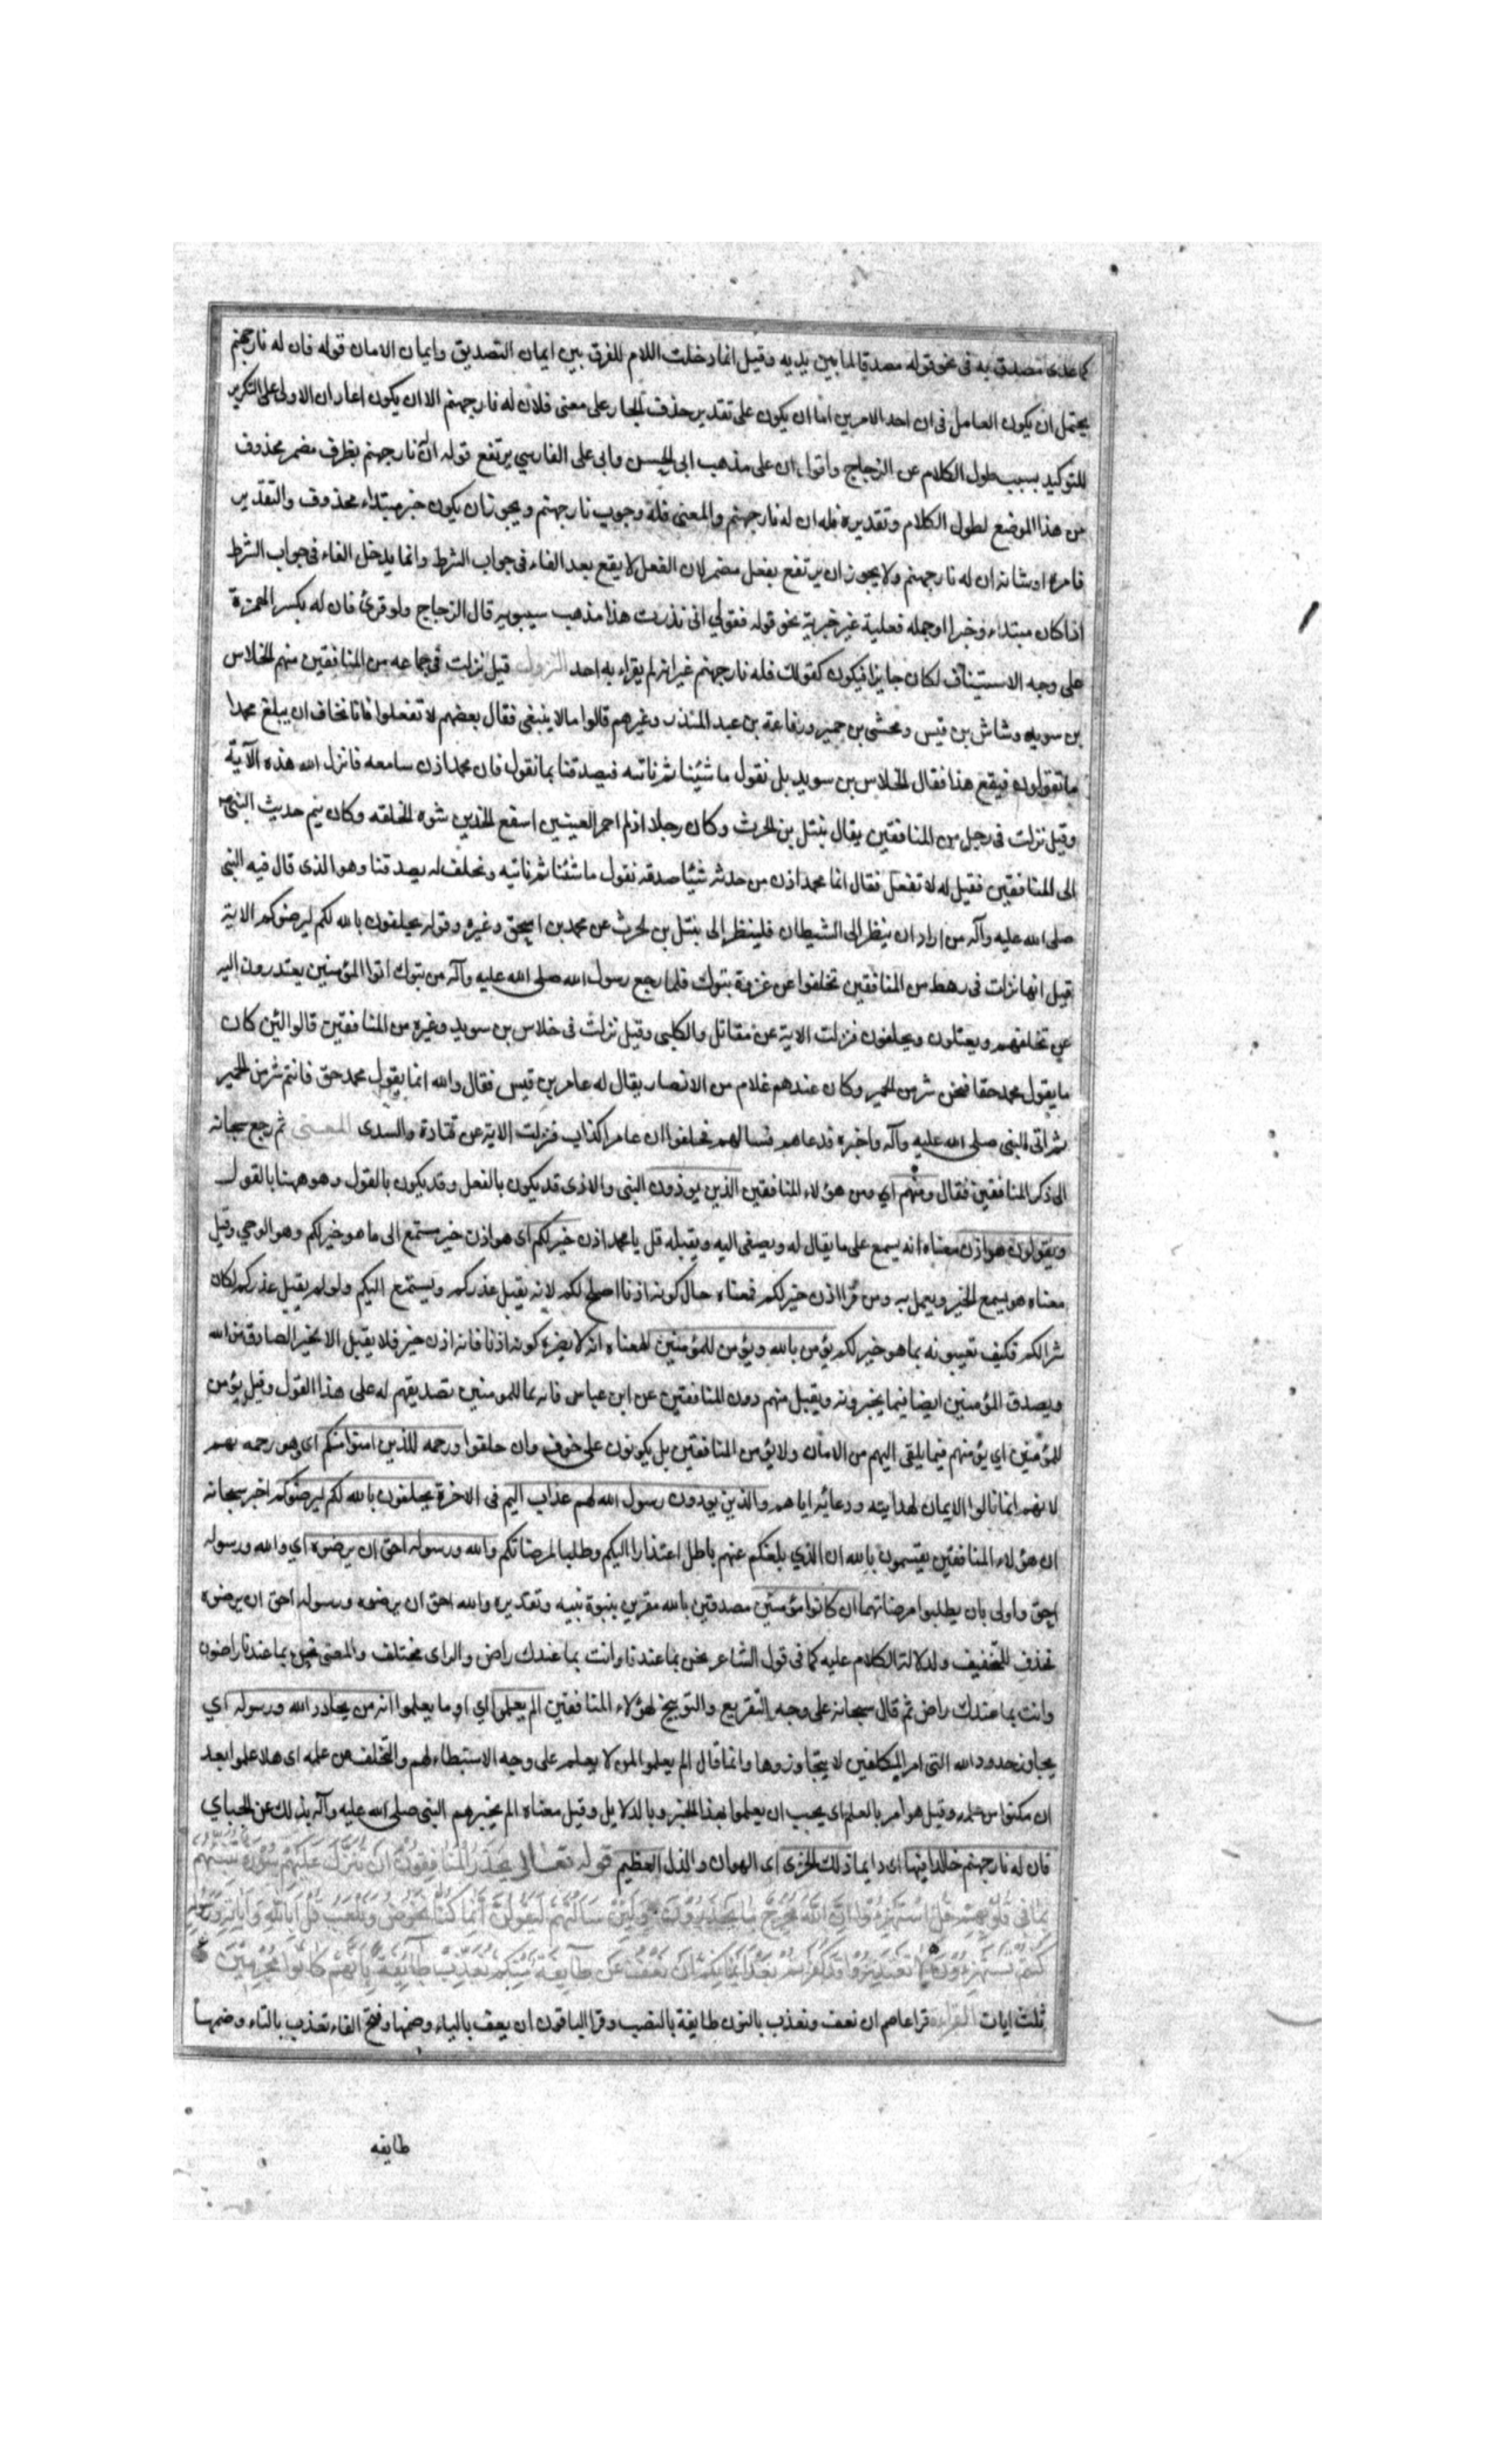 كما عدى مصدق به فى نحو قوله مصدقا لما بين يديه وقيل انما دخلت اللام للفرق بين ايمان التصديق وايمان الامان قوله فان له نار جهنم
يحتمل ان يكون العامل فى ان احد الامرين اما ان يكون على تقدير حذف الجار على معنى فلان له نار جهنم الا ان يكون اعاد ان الاولى على التكرير
للتوكيد بسبب طول الكلام عن الزجاج واقول ان على مذهب ابى الحسن وابى على الفارسي يرتفع قوله ان نار جهنم بظرف مضمر محذوف
من هذا الموضع لطول الكلام وتقديره فله ان له نار جهنم والمعنى فله وجوب نار جهنم ويجوز ان يكون خبر مبتداء محذوف والتقدير
فامره او شانه ان له نار جهنم ولا يجوز ان يرتفع بفعل مضمر لان الفعل لا يقع بعد الفاء فى جواب الشرط وانما يدخل الفاء فى جواب الشرط
اذا كان مبتداء وخبرا او جمله فعلية غير خبرية نحو قوله فقولي انى نذرت هذا مذهب سيبويه قال الزجاج ولو قرئ فان له بكسر الهمزة
على وجه الاستيناف لكان جايزا فيكون كقولك فله نار جهنم غير انه لم يقراء به احد النزول قيل نزلت فى جماعه من المنافقين منهم الخلاس
بن سويد وشاش بن قيس ومخشى بن حمير ورفاعة بن عبد المنذر وغيرهم قالوا ما لا ينبغى فقال بعضهم لا تفعلوا فانا نخاف ان يبلغ محمدا
ما تقولون فيقع هذا فقال الخلاس بن سويد بل نقول ما شئنا ثم ناتيه فيصدقنا بما نقول فان محمد اذن سامعه فانزل الله هذه الآية
وقيل نزلت فى رجل من المنافقين يقال نبتل بن الحرث وكان رجلا اذلم احمر العينين اسفع الخدين شوه الخلقه وكان ينم حديث النبى
الى المنافقين فقيل له لا تفعل فقال انما محمد اذن من حدثه شيئا صدقه نقول ما شئنا ثم ناتيه ونحلف له يصدقنا وهو الذى قال فيه النبى
صلى الله عليه وآله من اراد ان ينظر الى الشيطان فلينظر الى نبتل بن الحرث عن محمد بن اسحق وغيره وقوله يحلفون بالله لكم ليرضوكم الاية
قيل انها نزلت فى رهط من المنافقين تخلفوا عن غزوة تبوك فلما رجع رسول الله صلى الله عليه وآله من تبوك اتوا المؤمنين يعتذرون اليه
عن تخلفهم ويعتلون ويحلفون فنزلت الاية عن مقاتل والكلبى وقيل نزلت فى خلاس بن سويد وغيره من المنافقين قالوا لئن كان
ما يقول محمد حقا فنحن شر من الحمير وكان عندهم غلام من الانصار يقال له عامر بن قيس فقال والله انما يقول محمد حق فانتم شر من الحمير
ثم اتى النبى صلى الله عليه وآله واخبره فدعاهم فسالهم فحلفوا ان عامرا كذاب فنزلت الاية عن قتادة والسدى المعنى ثم رجع سبحانه
الى ذكر المنافقين فقال ومنهم اي ومن هؤلاء المنافقين الذين يوذون النبى والاذى قد يكون بالفعل وقد يكون بالقول وهو ههنا بالقول
ويقولون هو اذن معناه انه يسمع على ما يقال له ويصغى اليه ويقبله قل يا محمد اذن خير لكم اى هو اذن خير يستمع الى ما هو خير لكم وهو الوحي وقيل
معناه هو يسمع الخير ويعمل به ومن قرا اذن خير لكم فمعناه حال كونه اذنا اصلح لكم لانه يقبل عذركم ويستمع اليكم ولو لم يقبل عذركم لكان
شرا لكم فكيف تعيبونه بما هو خير لكم يؤمن بالله ويؤمن للمؤمنين معناه انه لا يضره كونه اذنا فانه اذن خير فلا يقبل الا الخبر الصادق من الله
ويصدق المؤمنين ايضا فيما يخبرونه ويقبل منهم دون المنافقين عن ابن عباس فانه بما للمومنين تصديقهم له على هذا القول وقيل يؤمن
للمؤمنين اي يؤمنهم فيما يلقى اليهم من الامان ولا يؤمن المنافقين بل يكونون على خوف وان حلفوا ورحمه للذين امنوا منكم اى وهو رحمه لهم
لانهم انما نالوا الايمان لهدايته ودعائه اياهم والذين يوذون رسول الله لهم عذاب اليم فى الاخرة يحلفون بالله لكم ليرضوكم اخبر سبحانه
ان هؤلاء المنافقين يقسمون بالله ان الذي بلغكم عنهم باطل اعتذارا اليكم وطلبا لمرضاتكم والله ورسوله احق ان يرضوه اي والله ورسوله
احق واولى بان يطلبوا مرضاتهما ان كانوا مؤمنين مصدقين بالله مقرين بنبوة نبيه وتقديره والله احق ان يرضوه ورسوله احق ان يرضوه
فحذف للتخفيف ولدلالة الكلام عليه كما فى قول الشاعر نحن بما عندنا وانت بما عندك راض والراى مختلف والمعنى نحن بما عندنا راضون
وانت بما عندك راض ثم قال سبحانه على وجه التقريع والتوبيخ لهؤلاء المنافقين الم يعلموا اي او ما يعلموا انه من يحادد الله ورسوله اي
يجاوز حدود الله التى امر المكلفين لا يتجاوزوها وانما قال الم يعلموا لمن لا يعلم على وجه الاستبطاء لهم والتخلف عن علمه اى هلا علموا بعد
ان مكنوا من علمه وقيل هو امر بالعلم اى يجب ان يعلموا بهذا الخبر وبالدلايل وقيل معناه الم يخبرهم النبى صلى الله عليه وآله بذلك عن الجباي
فان له نار جهنم خالدا فيها اى دايما ذلك الخزى اى الهوان والذل العظيم قوله تعالى يحذر المنافقون ان تنزل عليهم سورة تنبئهم
بما فى قلوبهم قل استهزؤا ان الله مخرج ما تحذرون ولئن سالتهم ليقولن انما كنا نخوض ونلعب قل ابالله واياته ورسوله
كنتم تستهزؤن لا تعتذروا قد كفرتم بعد ايمانكم ان نعف عن طايفة منكم نعذب طايفة بانهم كانوا مجرمين
ثلث ايات القراءة قرا عاصم ان نعف ونعذب بالنون طايفة بالنصب وقرا الباقون ان يعف بالياء وضمها وفتح الفاء تعذب بالتاء وضمها
طايفه